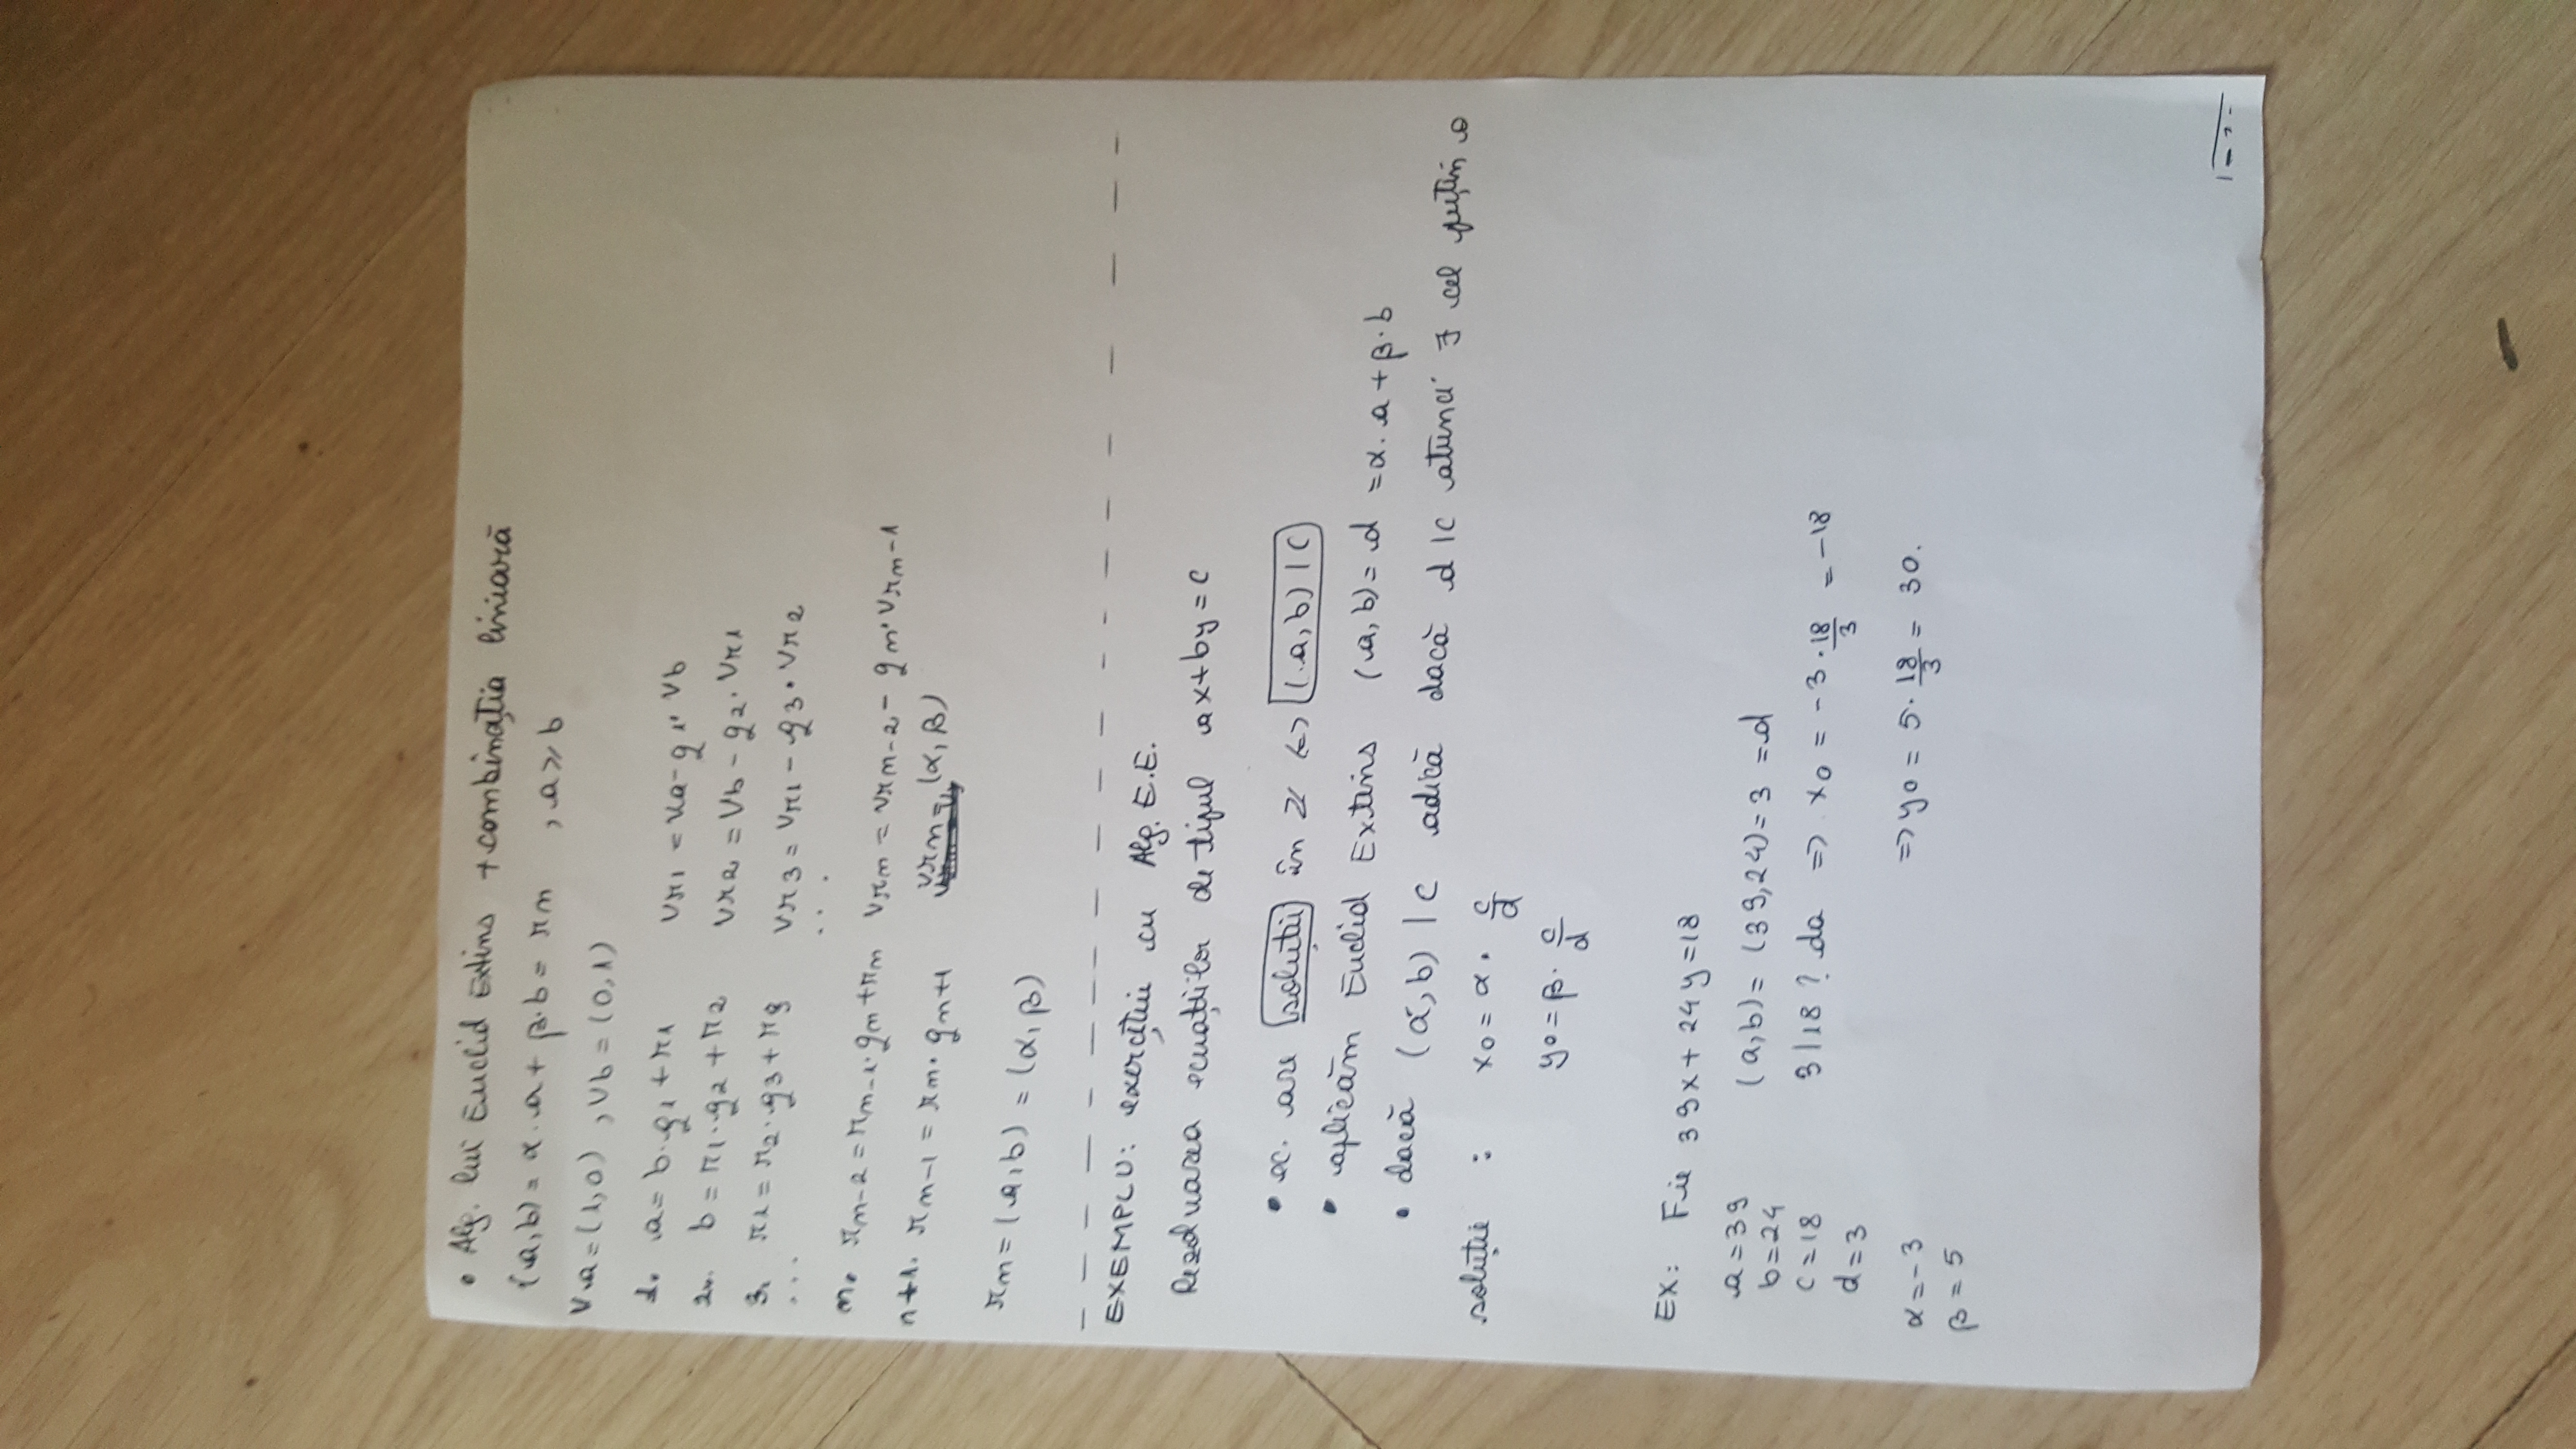 • Alg. lui Euclid Extins + combinația liniară
(a,b) = α·a + β·b = rn , a ≥ b
Va = (1,0) , Vb = (0,1)
1. a = b·q1 + r1 Vr1 = Va - q1·Vb
2. b = r1·q2 + r2 Vr2 = Vb - q2·Vr1
3. r1 = r2·q3 + r3 Vr3 = Vr1 - q3·Vr2
... ...
n. rn-2 = rn-1·qn + rn Vrn = Vrn-2 - qn·Vrn-1
n+1. rn-1 = rn·qn+1 Vrn = (α, β)
rn = (a,b) = (α, β)
EXEMPLU: exercițiu cu Alg. E.E.
Rezolvarea ecuațiilor de tipul ax+by=c
• ec. are soluții în Z <=> (a,b) | c
• aplicăm Euclid Extins (a,b) = d = α·a + β·b
• dacă (a,b) | c adică dacă d|c atunci ∃ cel puțin o
soluție : x0 = α · c/d
y0 = β · c/d
EX: Fie 39x + 24y = 18
a = 39 (a,b) = (39,24) = 3 = d
b = 24
c = 18 3|18 ? da => x0 = -3 · 18/3 = -18
d = 3
α = -3 => y0 = 5 · 18/3 = 30.
β = 5